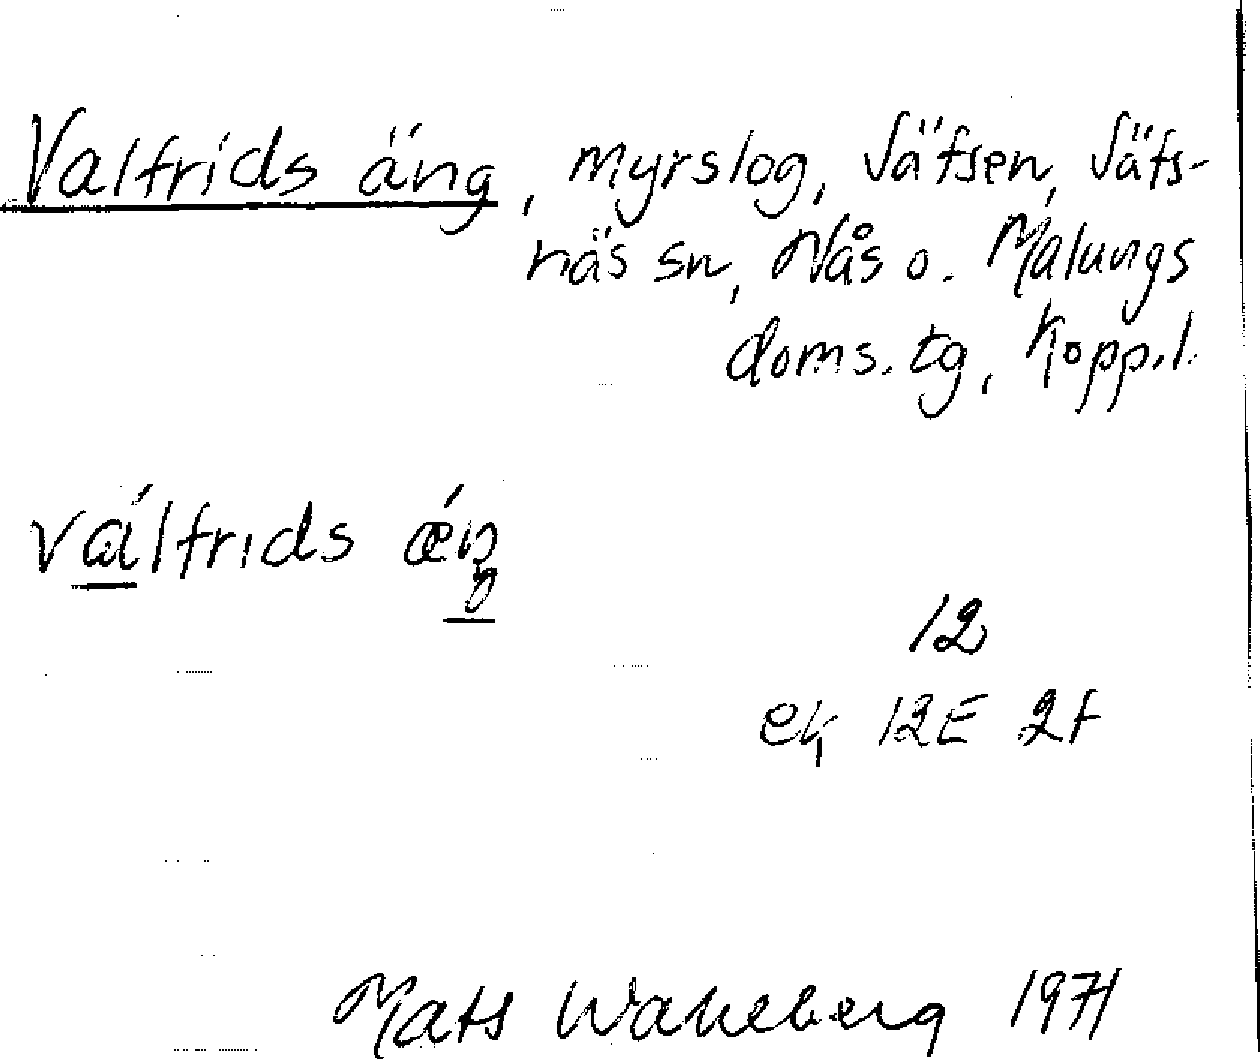 Valfrids äng, myrslog, Sätsen, Säfs-
näs sn, Nås o. Malungs
doms.tg, Kopp.l.
válfrids ǽŋ
12
ek 12E 2f
Mats Wahlberg 1971